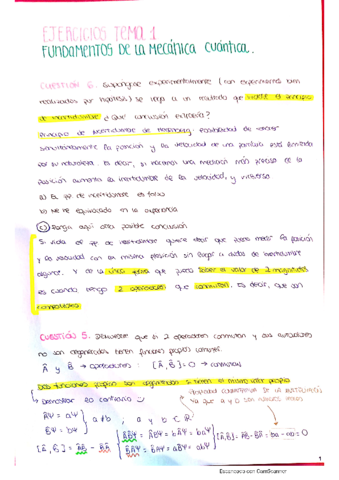 EJERCICIOS TEMA 1
FUNDAMENTOS DE LA MECÁNICA CUÁNTICA.
CUESTIÓN 6. Supongase experimentalmente (con experimentos bien
realizados por hipótesis) se llega a un resultado que viole el principio
de incertidumbre ¿Qué conclusión extraería?
Principio de incertidumbre de Heisenberg: Posibilidad de
simultáneamente la posición y la velocidad de una partícula está limitada
por su naturaleza. Es decir, si hacemos una medición más precisa de la
posición aumenta la incertidumbre de la velocidad, y viceversa
a) El pp. de incertidumbre es falso
b) Me he equivocado en la experiencia
c) Sacaría aquí otra posible conclusión
Si viola el pp de incertidumbre quiere decir que puedo medir la posición
y la velocidad con la misma precisión sin llegar a datos de incertidumbre
alguno. Y de la única forma que puedo saber el valor de 2 magnitudes
es cuando tengo 2 operadores que conmutan. Es decir, que son
compatibles.
CUESTIÓN 5. Demuestre que si 2 operadores conmutan y sus autovalores
no son degenerados tienen funciones propias comunes.
Â y B̂ → operadores : [Â,B̂]=0 → conmutan
Dos funciones propias son degeneradas si tienen el mismo valor propio
↳ Demostrar lo contrario
ya que a y b son números reales
ÂΨ = aΨ
B̂Ψ = bΨ } a ≠ b ; a y b ∈ ℝ
[Â,B̂] = ÂB̂ - B̂Â { ÂB̂Ψ = ÂbΨ = bÂΨ = baΨ
B̂ÂΨ = B̂aΨ = aB̂Ψ = abΨ } [Â,B̂] = ÂB̂-B̂Â = ba-ab = 0
1
Escaneado con CamScanner